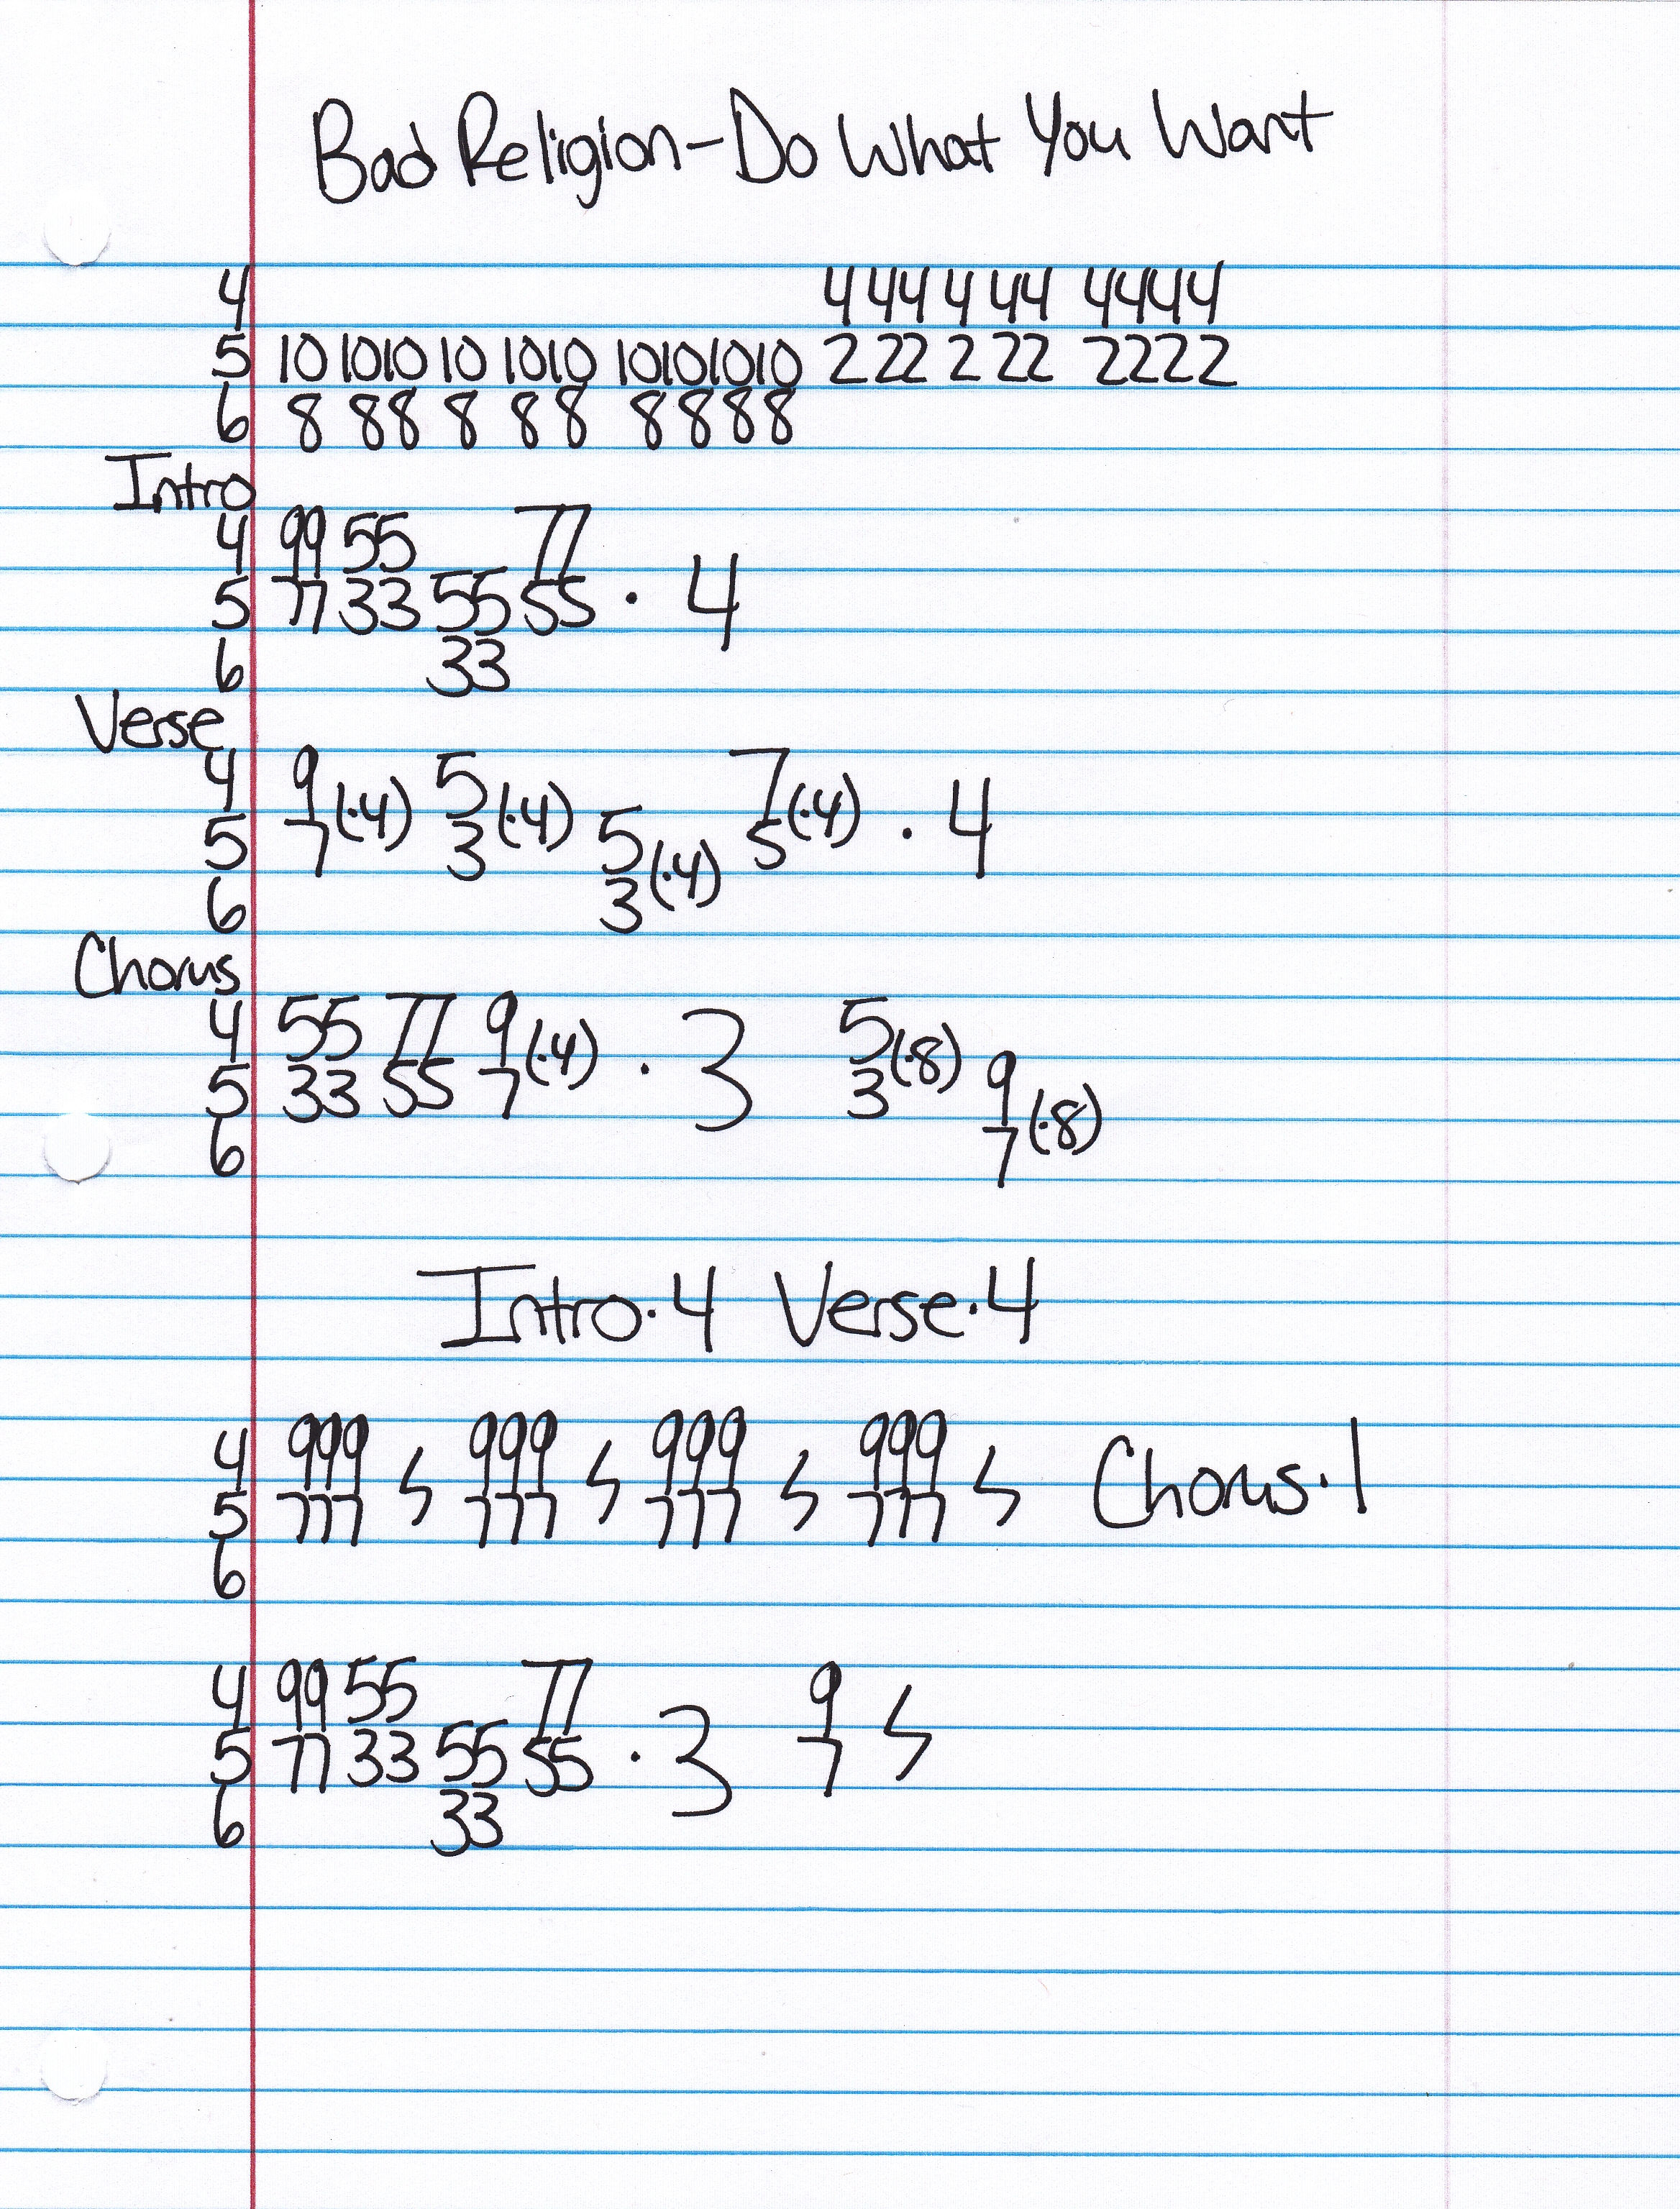 Bad Religion-Do What You Want
4 4 44 4 44 4444
5 10 1010 10 1010 10101010 2 22 2 22 2222
6 8 88 8 88 8888
Intro
4 99 55 77
5 77 33 55 55 · 4
6 33
Verse
4 9 5 7
5 7(·4) 3(·4) 5 5(·4) · 4
6 3(·4)
Chorus
4 55 77 9 5
5 33 55 7(·4) · 3 3(·8) 9
6 7(·8)
Intro·4 Verse·4
4 999 999 999 999
5 777 𝄽 777 𝄽 777 𝄽 777 𝄽 Chorus·1
6
4 99 55 77 9
5 77 33 55 55 · 3 7 𝄽
6 33